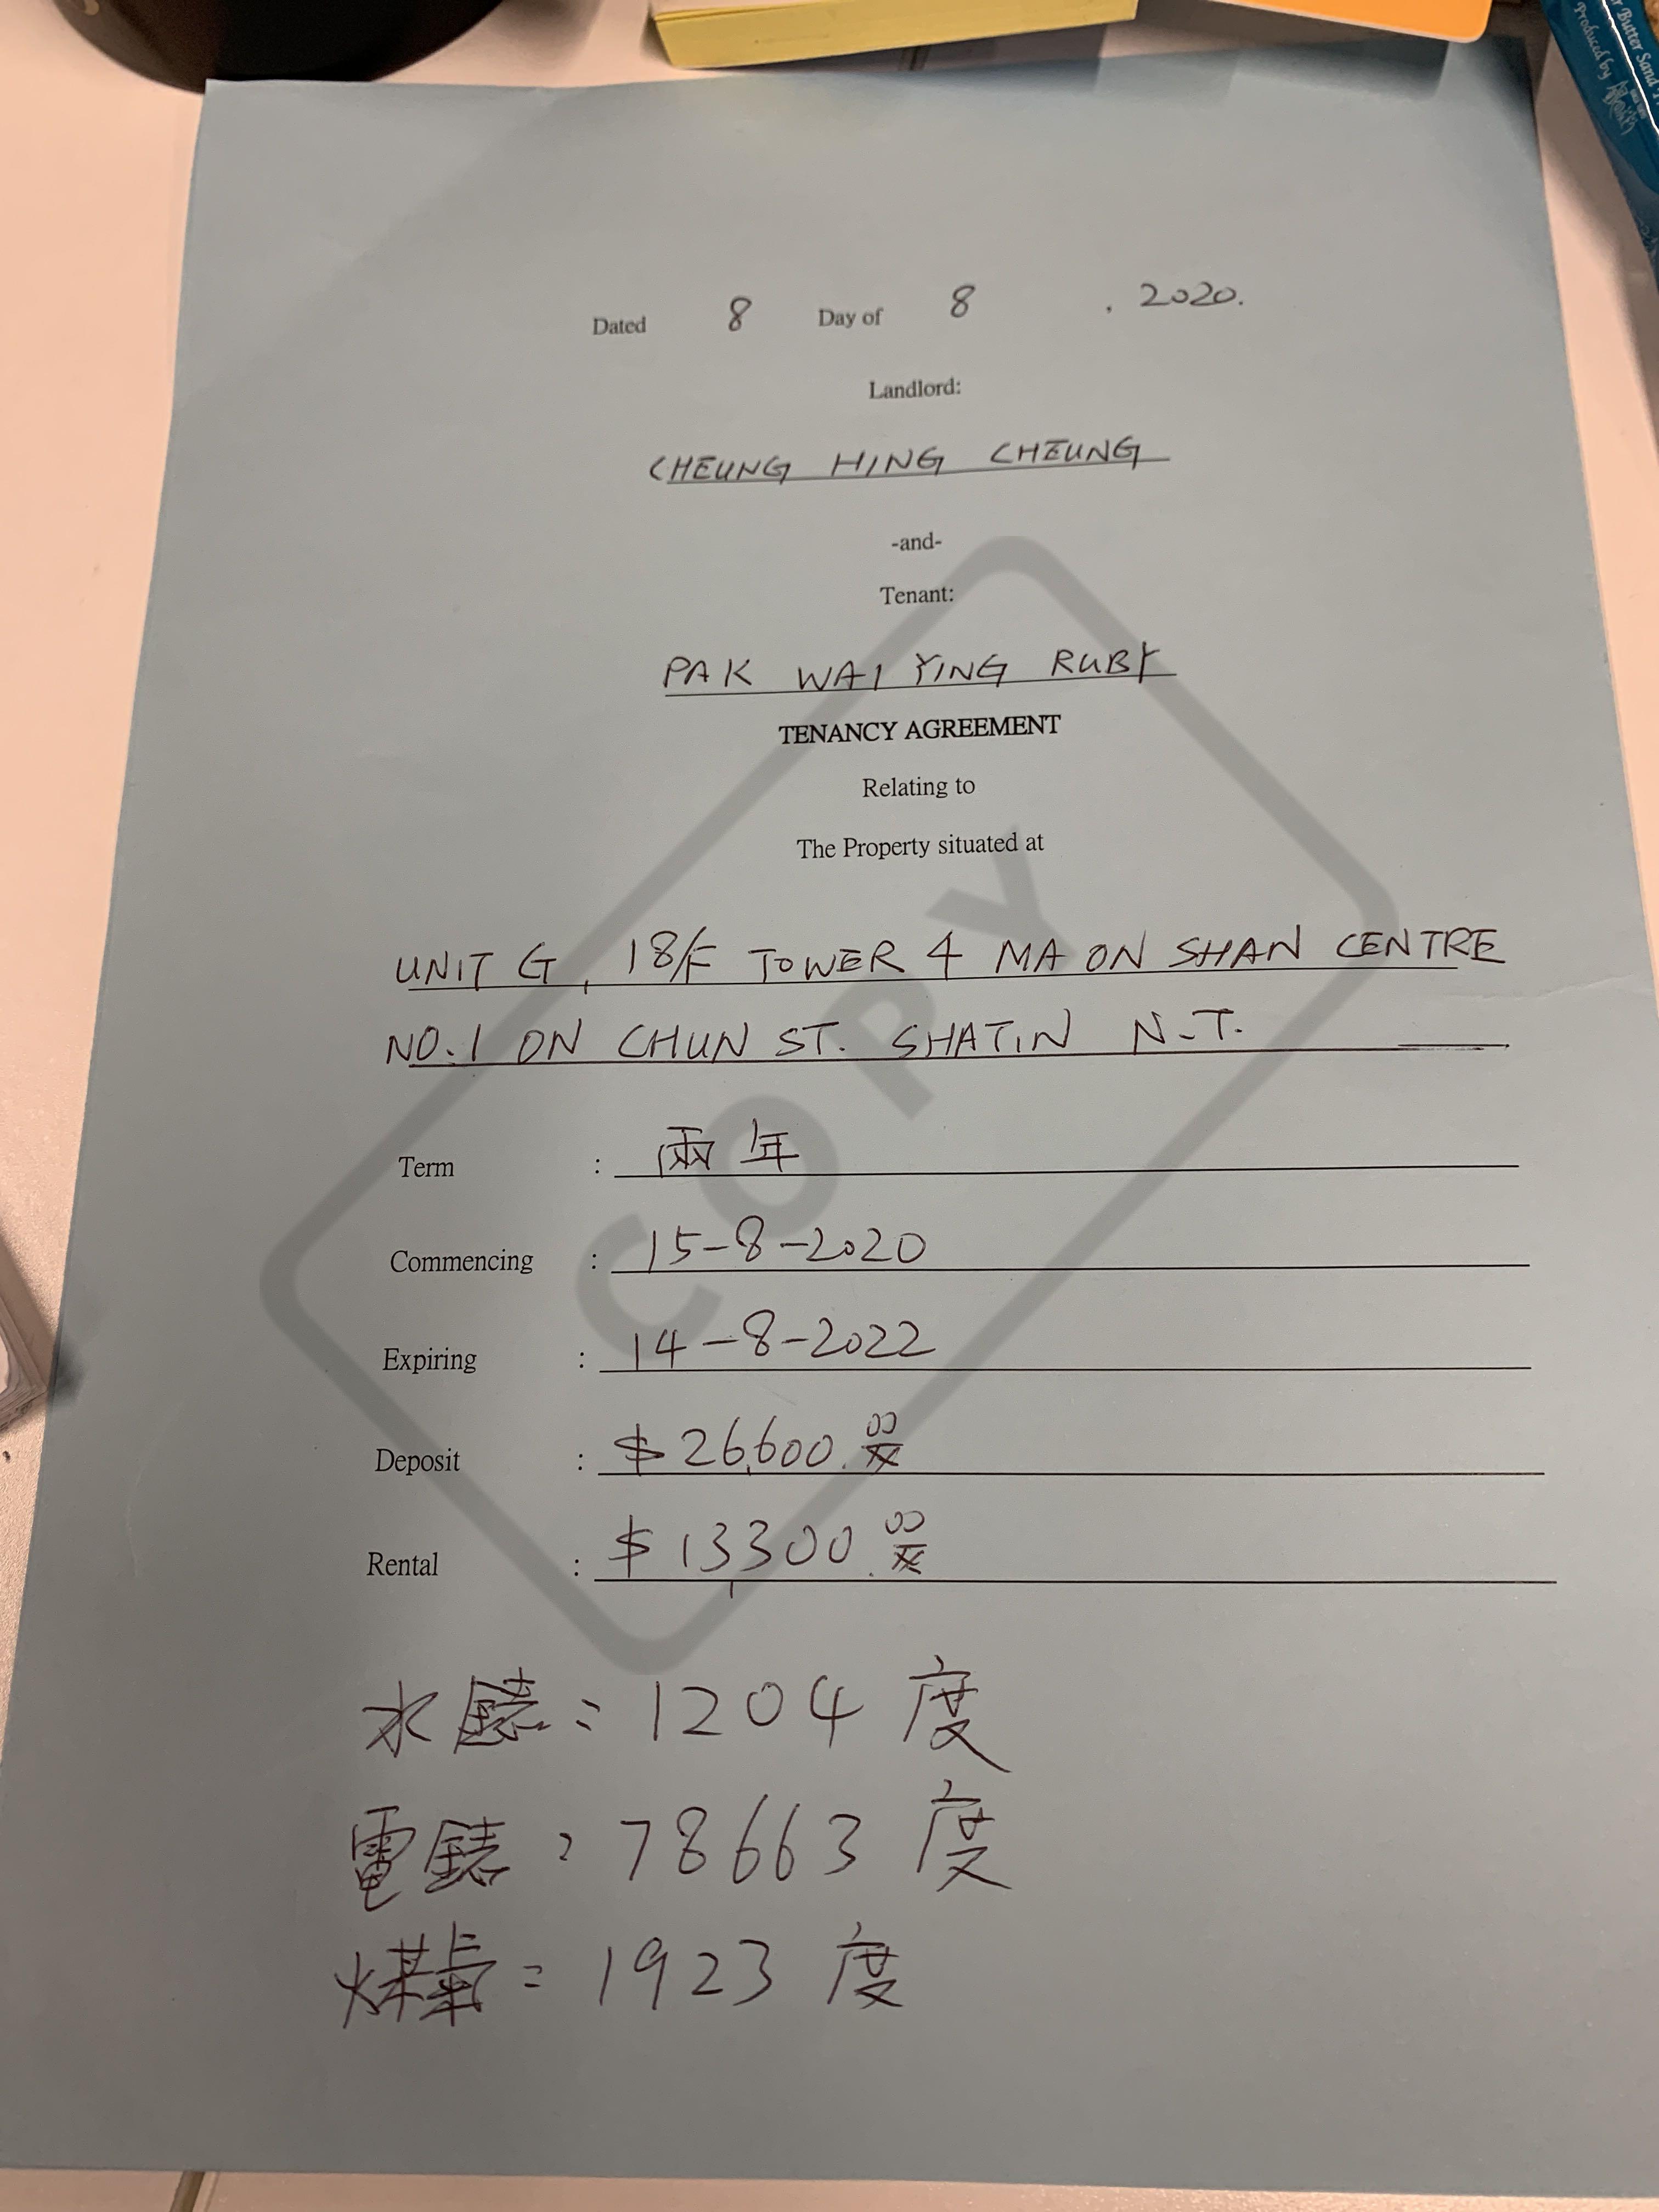 r Butter Sand
Produced by
Dated 8 Day of 8 , 2020.
Landlord:
CHEUNG HING CHEUNG
-and-
Tenant:
PAK WAI YING RUBY
TENANCY AGREEMENT
Relating to
The Property situated at
UNIT G, 18/F TOWER 4 MA ON SHAN CENTRE
NO.1 ON CHUN ST. SHATIN N.T.
Term : 兩年
Commencing : 15-8-2020
Expiring : 14-8-2022
Deposit : $26,600.00/XX
Rental : $13,300.00/XX
水錶: 1204度
電錶: 78663度
煤氣: 1923度
COPY